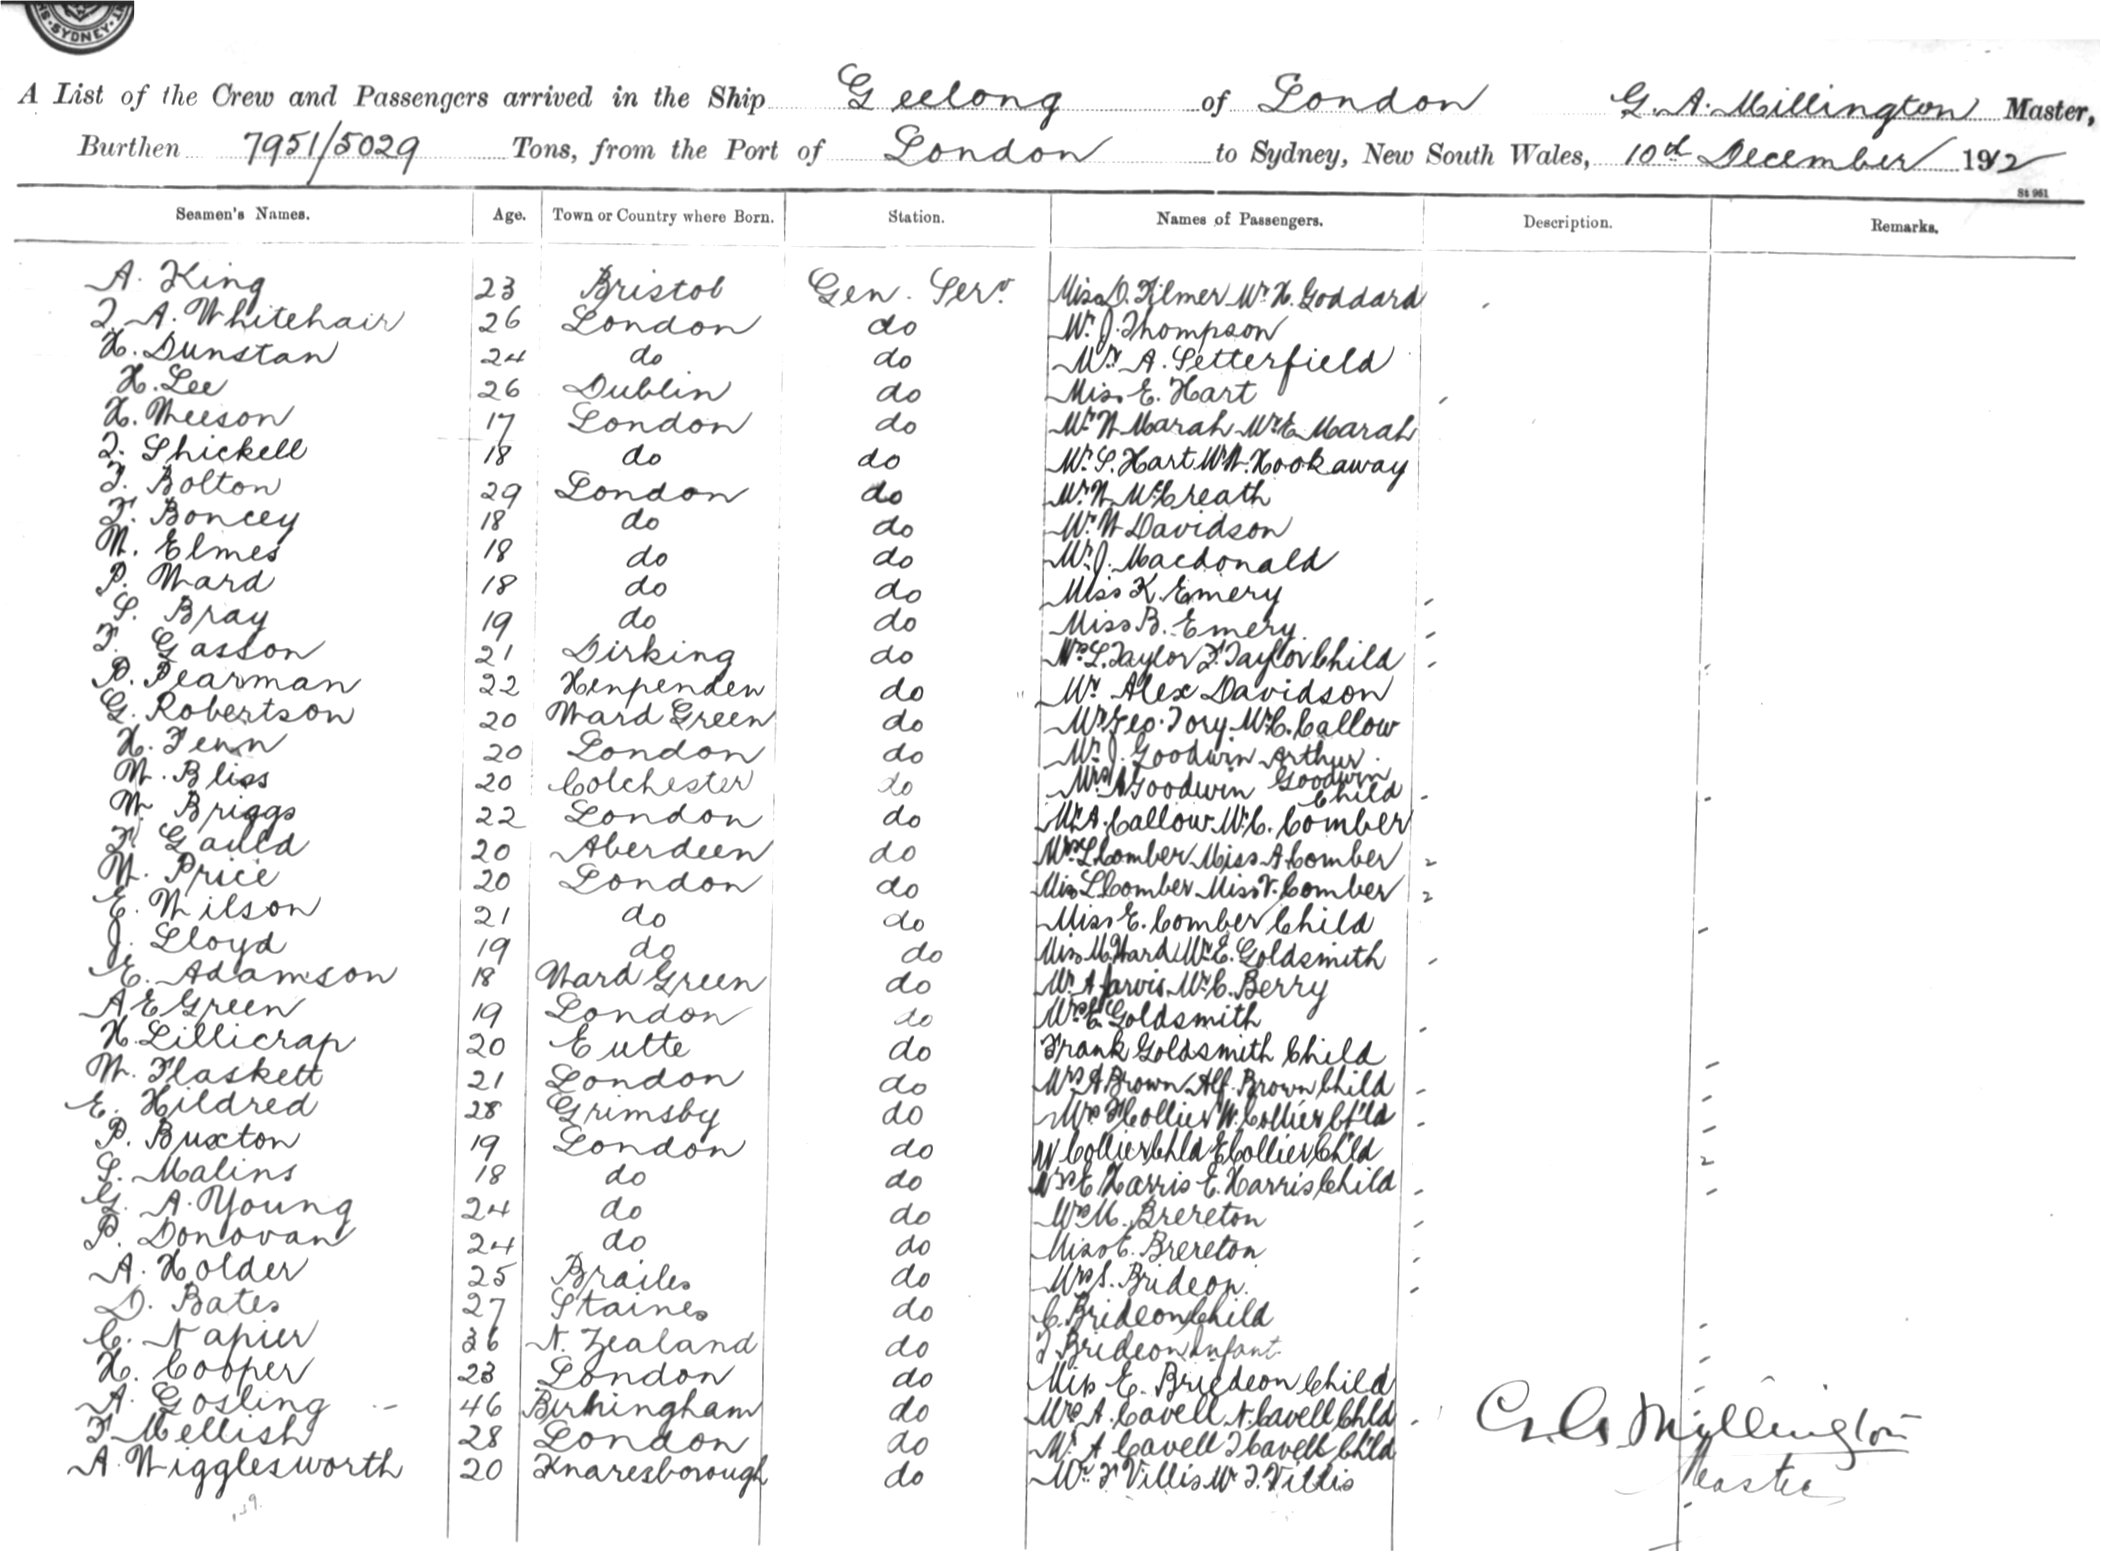 SYDNEY
A List of the Crew and Passengers arrived in the Ship Geelong of London G. A. Millington Master,
Burthen 7951/5029 Tons, from the Port of London to Sydney, New South Wales, 10th December 1912
St 961
Seamen's Names. Age. Town or Country where Born. Station. Names of Passengers. Description. Remarks.
A. King 23 Bristol Gen. Serv. Miss D. Filmer Mr H. Goddard
A. Whitehair 26 London do Mr J. Thompson
H. Dunstan 24 do do Mr A. Setterfield
H. Lee 26 Dublin do Miss E. Hart
H. Meeson 17 London do Mr W Marah Mr E Marah
Shickell 18 do do Mr S. Hart Mr W. Hookaway
Bolton 29 London do Mr W McCreath
F. Boncey 18 do do Mr W Davidson
W. Elmes 18 do do Mr J. Macdonald
P. Ward 18 do do Miss K. Emery
S. Bray 19 do do Miss B. Emery
F. Gasson 21 Dirking do Mrs L. Taylor F. Taylor Child
P. Pearman 22 Henpenden do Mr Alex Davidson
G. Robertson 20 Ward Green do Mr Geo. Tory Mr C. Callow
H. Fenn 20 London do Mr J. Goodwin Arthur
W. Bliss 20 Colchester do Mrs A Goodwin Goodwin Child
W. Briggs 22 London do Mr A. Callow Mr C. Comber
F. Gauld 20 Aberdeen do Mrs L Comber Miss A Comber 2
W. Price 20 London do Miss L Comber Miss V. Comber 2
E. Wilson 21 do do Miss E. Comber Child
J. Lloyd 19 do do Miss M. Ward Mr E. Goldsmith
E. Adamson 18 Ward Green do Mr A Jarvis Mr C. Berry
A E Green 19 London do Mrs E. Goldsmith
H. Lillicrap 20 Eutte do Frank Goldsmith Child
W. Flaskett 21 London do Mrs A Brown Alf. Brown Child
E. Hildred 28 Grimsby do Mrs F Collier W. Collier Ch'ld
P. Buxton 19 London do W Collier Chld E Collier Ch'ld 2
S. Malins 18 do do Mrs E Harris E. Harris Child
G. A. Young 24 do do Mrs M. Brereton
P. Donovan 24 do do Miss E. Brereton
A. Holder 25 Brailes do Mrs S. Brideon
D. Bates 27 Staines do C. Brideon Child
C. Napier 36 N. Zealand do Brideon Infant
H. Cooper 23 London do Miss E. Briedeon Child
A. Gosling 46 Birmingham do Mrs A. Cavell N. Cavell Chld
F. Mellish 28 London do Mr A Cavell Cavell Ch'ld
A. Wigglesworth 20 Knaresborough do Mr F Villis Mr Villis
G. A. Millington
Master